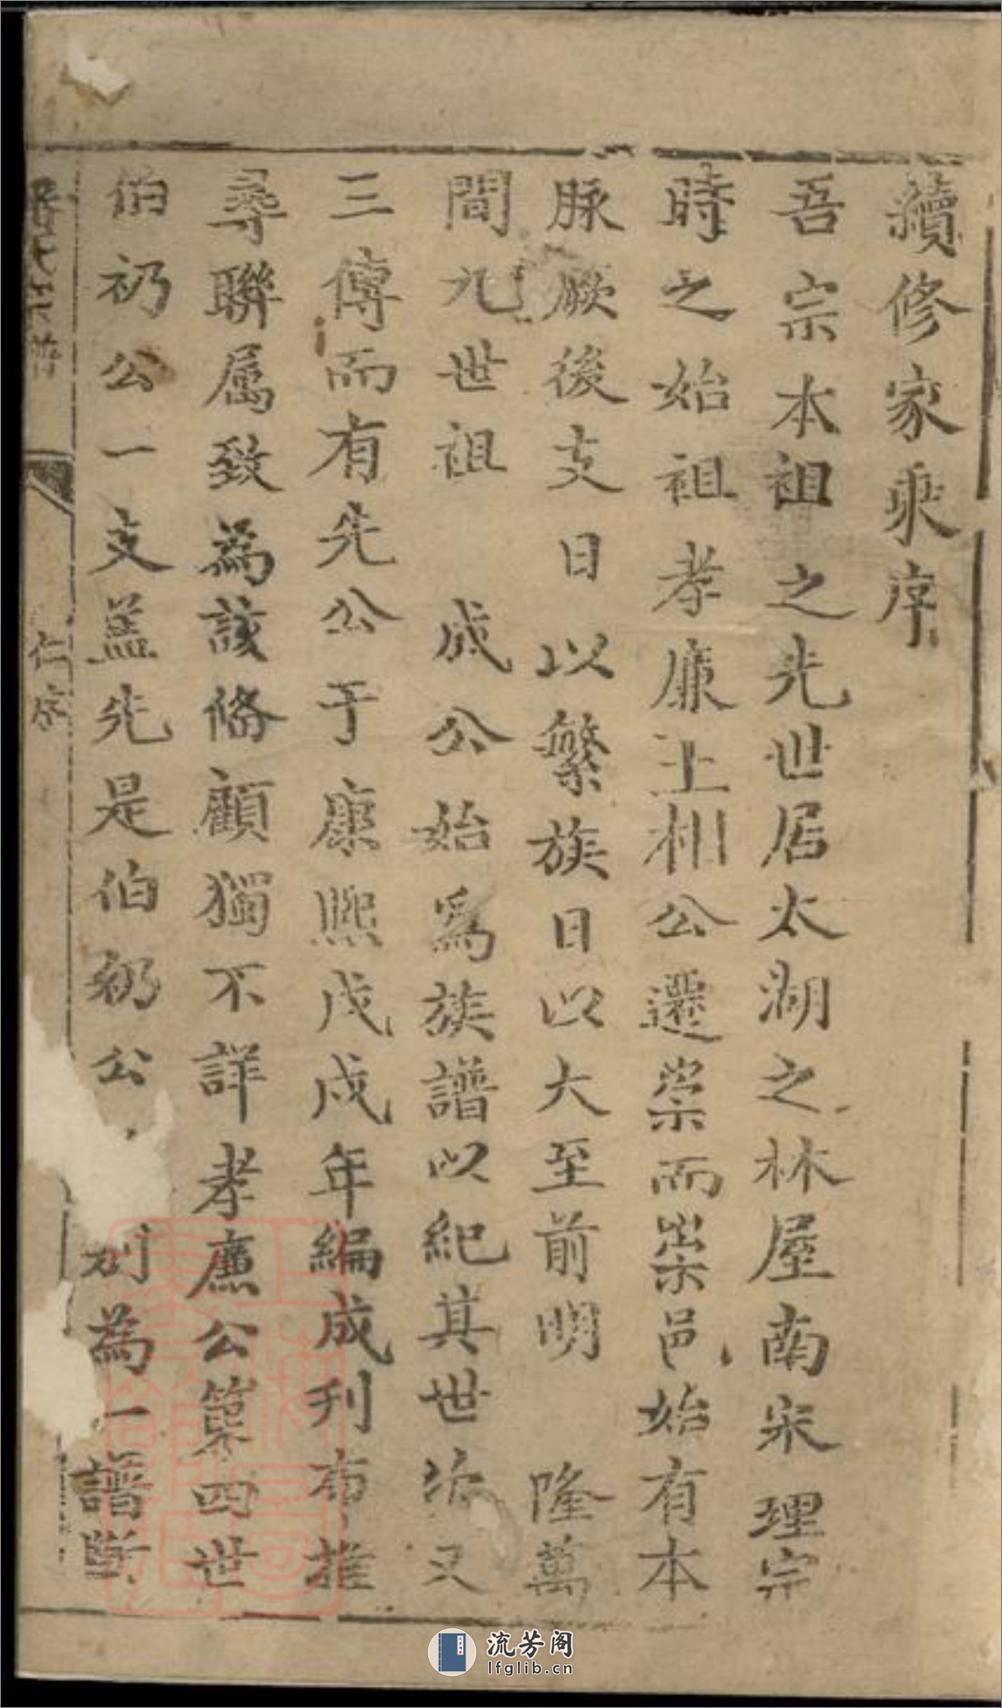 續修家乘序
吾宗本祖之先世居太湖之林屋南宋理宗
時之始祖孝廉上相公遷崇而崇邑始有本
脉厥後支日以繁族日以大至前明 隆萬
間九世祖 成公始為族譜以紀其世次又
三傳而有先公于康熙戊戌年編成刊布推
尋聯属致為該俻顧獨不詳孝廉公第四世
伯礽公一支盖先是伯礽公 别為一譜斷
氏宗譜
仁序
流芳阁
lfglib.cn